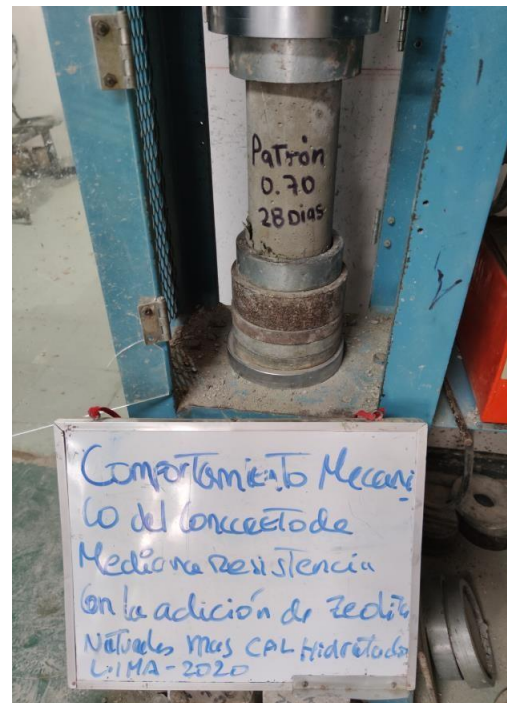 Patrón
0.70
28 Dias
Comportamiento Mecani
co del Concreto de
Mediana Resistencia
Con la adición de Zeolita
Naturales mas CAL Hidratada
LIMA-2020